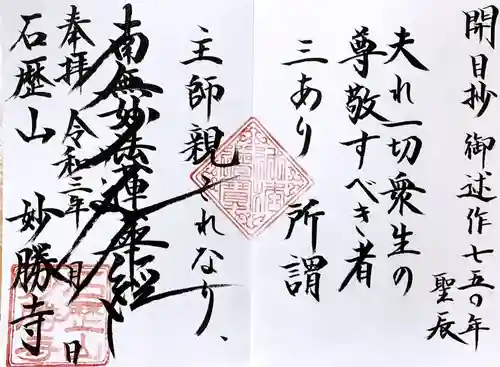 開目抄 御述作七五〇年
聖辰
夫れ一切衆生の
尊敬すべき者
三あり 所謂
主師親これなり、
南無妙法蓮華経
奉拝 令和三年 月 日
石歴山 妙勝寺